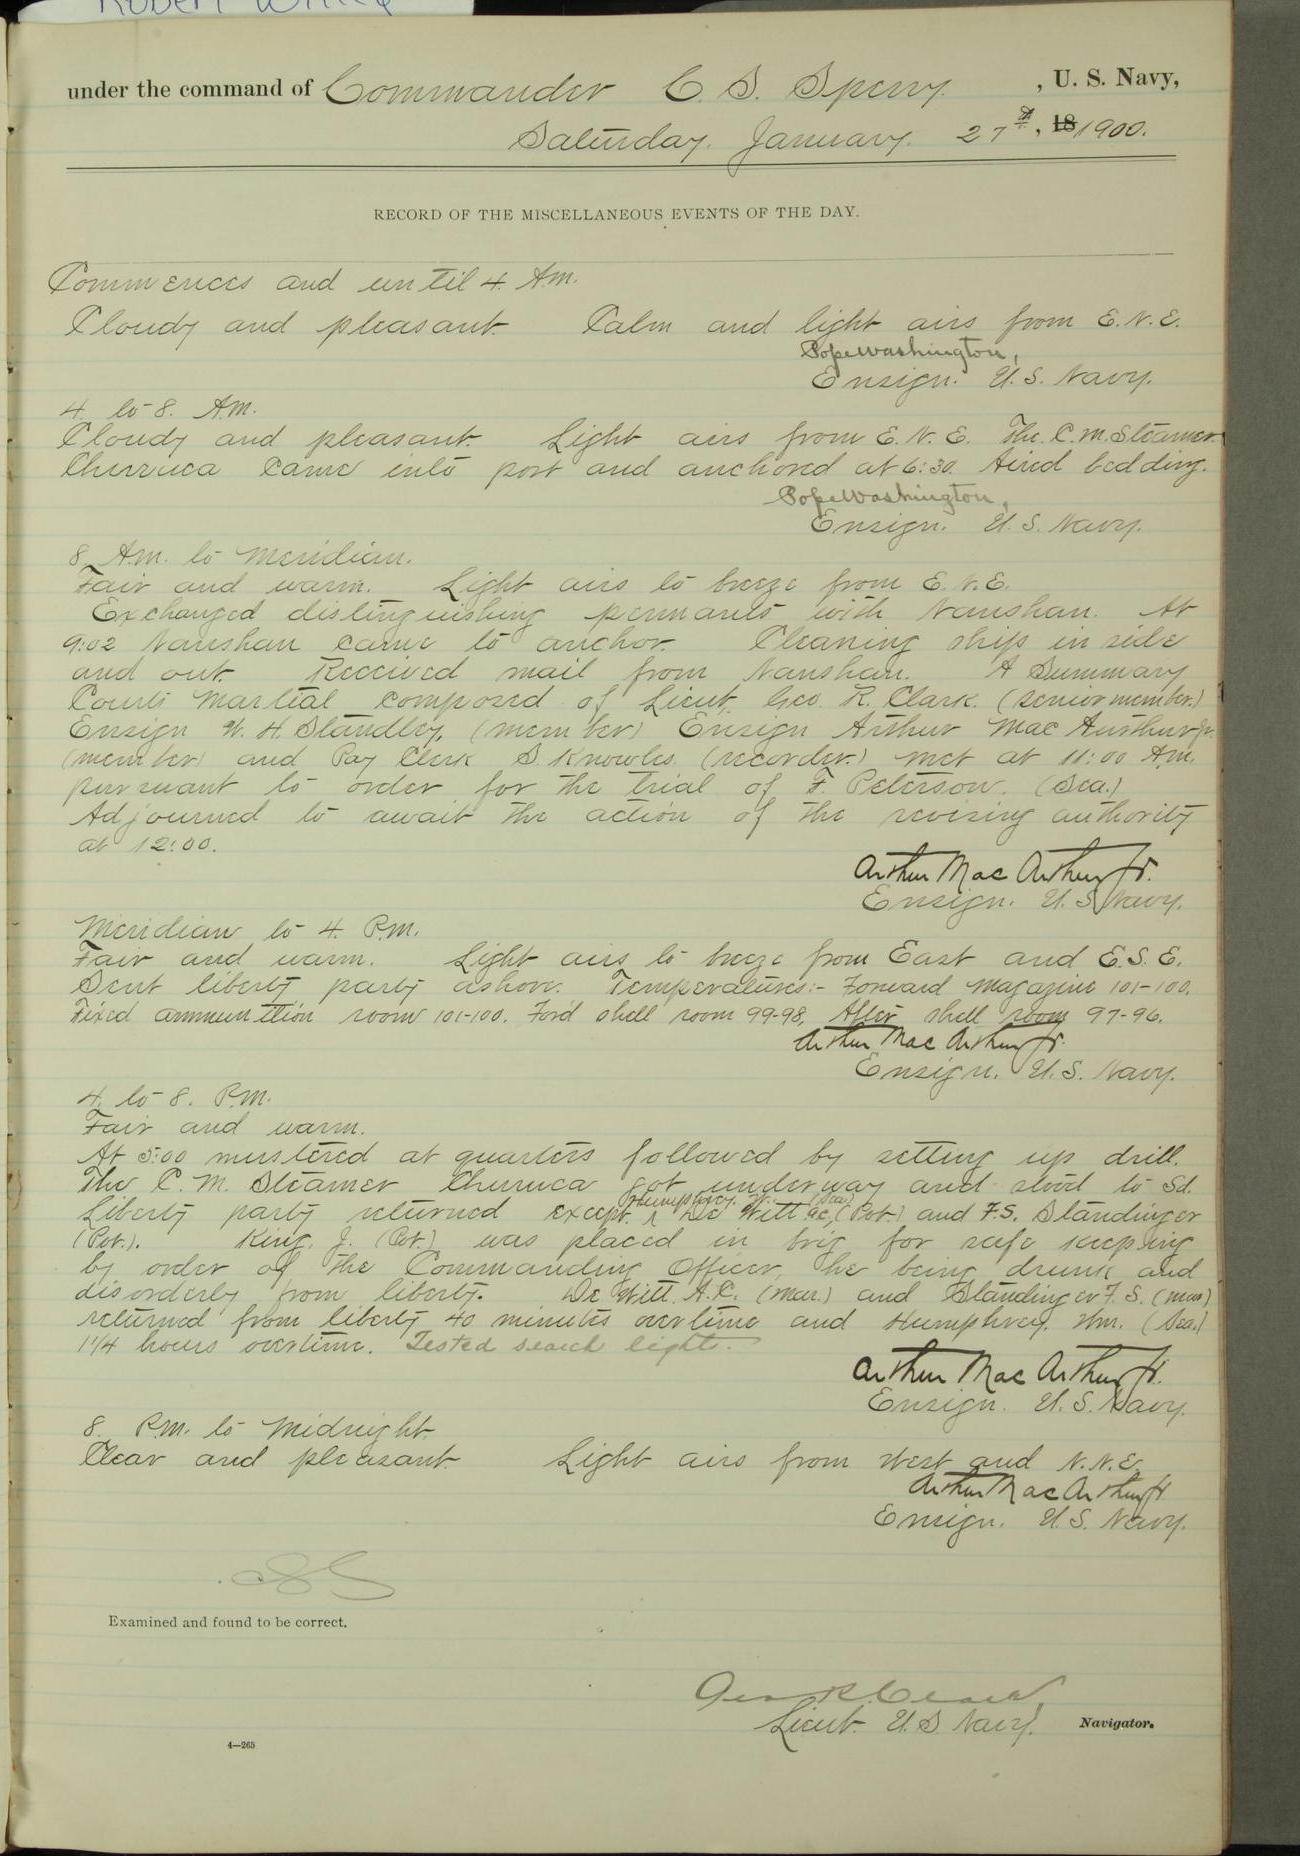 under the command of Commander C. S. Sperry , U. S. Navy,
Saturday. January. 27th, 18 1900.
RECORD OF THE MISCELLANEOUS EVENTS OF THE DAY.
Commences and until 4. A.m.
Cloudy and pleasant. Calm and light airs from E.N.E.
Pope Washington,
Ensign. U.S. Navy.
4. to 8. A.m.
Cloudy and pleasant. Light airs from E.N.E. The C.M. Steamer
Churruca came into port and anchored at 6:30. Aired bedding.
Pope Washington,
Ensign. U.S. Navy.
8 A.m. to Meridian.
Fair and warm. Light airs to breeze from E.N.E.
Exchanged distinguishing pennants with Nanshan. At
9:02 Nanshan came to anchor. Cleaning ship in side
and out. Received mail from Nanshan. A Summary
Courts Martial composed of Lieut. Geo. R. Clark. (senior member.)
Ensign W. H. Standley, (member) Ensign Arthur Mac Aurthur Jr.
(member) and Pay Clerk S. Knowles (recorder.) met at 11:00 A.m.
pursuant to order for the trial of F. Peterson. (Sea.)
Adjourned to await the action of the revising authority
at 12:00.
Arthur Mac Arthur Jr.
Ensign. U.S. Navy.
Meridian to 4. P.m.
Fair and warm. Light airs to breeze from East and E.S.E.
Sent liberty party ashore. Temperatures:- Forward Magazine 101-100.
Fixed ammunition room 101-100. For'd shell room 99-98. After shell room 97-96.
Arthur Mac Arthur Jr.
Ensign. U.S. Navy.
4. to 8. P.m.
Fair and warm.
At 5:00 mustered at quarters followed by setting up drill.
The C. M. Steamer Churruca got underway and stood to Sd.
Humphrey. (Sea.)
Liberty party returned except. De Witt A.C. (Pvt.) and F.S. Standinger
(Pvt.). King, J. (Pvt.) was placed in brig for safe keeping
by order of the Commanding Officer, he being drunk and
disorderly from liberty. De Witt. A.C. (Mar.) and Standinger F. S. (Mar)
returned from liberty 40 minutes overtime and Humphrey. Wm. (Sea.)
1 1/4 hours overtime. Tested search lights.
Arthur Mac Arthur Jr.
Ensign. U.S. Navy.
8. P.m. to Midnight.
Clear and pleasant. Light airs from West and N.N.E.
Arthur Mac Arthur Jr
Ensign. U.S. Navy.
Examined and found to be correct.
Geo R. Clark,
Lieut. U.S Navy. Navigator.
4—265